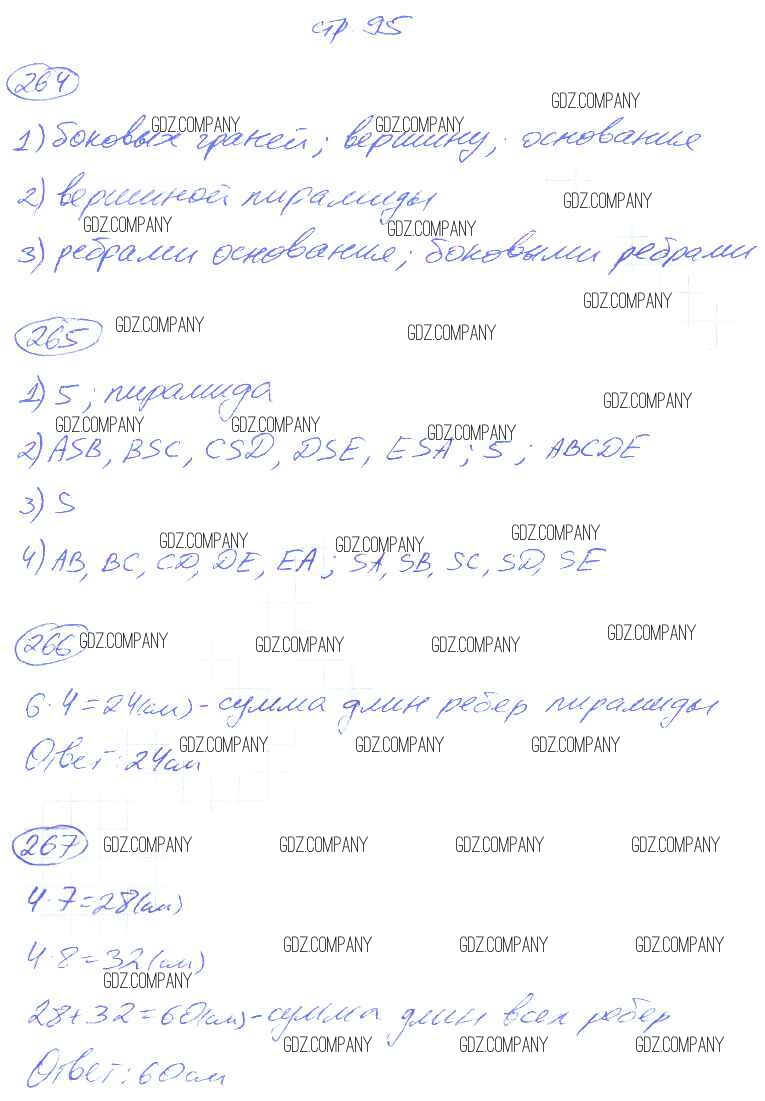 стр. 95
264
GDZ.COMPANY
GDZ.COMPANY GDZ.COMPANY
1) боковых граней; вершину; основания
GDZ.COMPANY
2) вершиной пирамиды
GDZ.COMPANY GDZ.COMPANY
3) ребрами основания; боковыми ребрами
GDZ.COMPANY
265 GDZ.COMPANY GDZ.COMPANY
1) 5; пирамида
GDZ.COMPANY
GDZ.COMPANY GDZ.COMPANY GDZ.COMPANY
2) ASB, BSC, CSD, DSE, ESA; 5; ABCDE
3) S
GDZ.COMPANY GDZ.COMPANY GDZ.COMPANY
4) AB, BC, CD, DE, EA; SA, SB, SC, SD, SE
266 GDZ.COMPANY GDZ.COMPANY GDZ.COMPANY GDZ.COMPANY
6·4=24(см)-сумма длин ребер пирамиды
GDZ.COMPANY GDZ.COMPANY GDZ.COMPANY
Ответ: 24см
267 GDZ.COMPANY GDZ.COMPANY GDZ.COMPANY GDZ.COMPANY
4·7=28(см)
GDZ.COMPANY GDZ.COMPANY GDZ.COMPANY
4·8=32(см)
GDZ.COMPANY
28+32=60(см)-сумма длин всех ребер
GDZ.COMPANY GDZ.COMPANY GDZ.COMPANY
Ответ: 60см